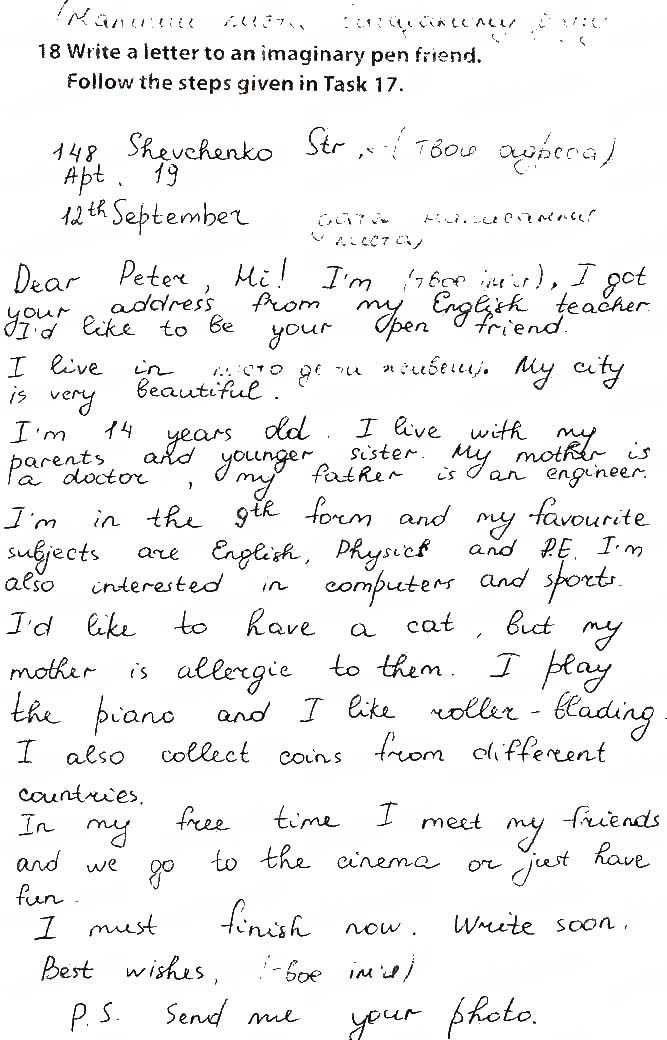 18 Write a letter to an imaginary pen friend.
Follow the steps given in Task 17.
148 Shevchenko Str., (твоя адреса)
Apt. 19
12th September дата написання
листа)
Dear Peter, Hi! I'm (твоє ім'я), I got
your address from my English teacher.
I'd like to be your pen friend.
I live in місто де ти живеш. My city
is very beautiful.
I'm 14 years old. I live with my
parents and younger sister. My mother is
a doctor, my father is an engineer.
I'm in the 9th form and my favourite
subjects are English, Physics and P.E. I'm
also interested in computers and sports.
I'd like to have a cat, but my
mother is allergic to them. I play
the piano and I like roller-blading.
I also collect coins from different
countries.
In my free time I meet my friends
and we go to the cinema or just have
fun.
I must finish now. Write soon.
Best wishes, (твоє ім'я)
P.S. Send me your photo.